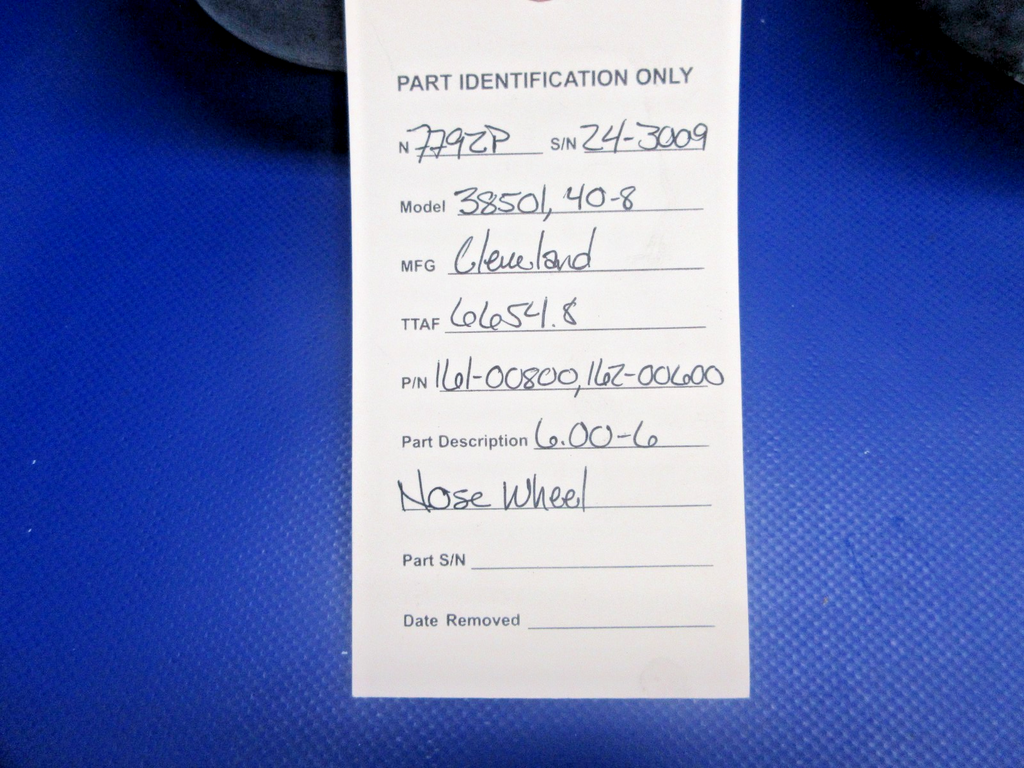 PART IDENTIFICATION ONLY
N 7792P S/N 24-3009
Model 38501, 40-8
MFG Cleveland
TTAF 6654.8
P/N 161-00800, 162-00600
Part Description 6.00-6
Nose Wheel
Part S/N
Date Removed